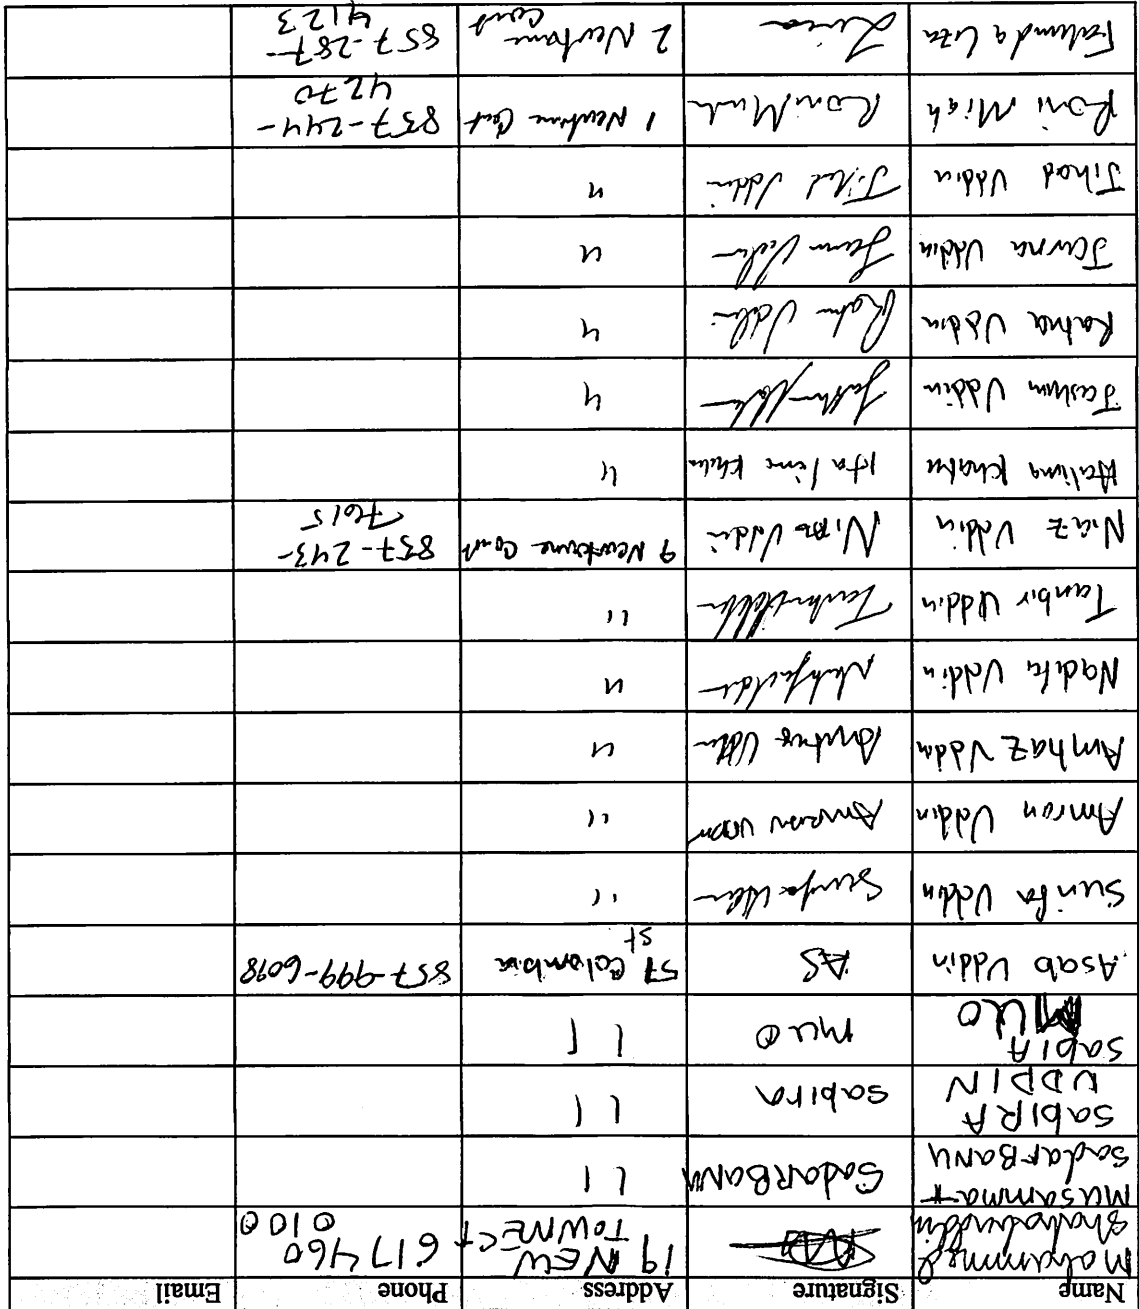 Name Signature Address Phone Email
Mohammed
Shahabuddin
19 NEW
TOWNE Ct
617460
0100
Musammat
SadarBanu
SadarBANU
l l
SabiRA
UDDIN
Sabira
l l
SabiA
MUO
MUO
l l
Asab Uddin AS 57 Columbia
St
857-999-6098
Surifa Uddin "
Amran Uddin "
Amhaz Uddin "
Nadifa Uddin "
Tanbir Uddin "
Niaz Uddin Niaz Uddin 9 Newtowne Court 857-243-
7615
Halima Khatu Halima Khatu "
Jashim Uddin "
Ratna Uddin Ratna Uddin "
Jarna Uddin "
Jihad Uddin Jihad Uddin "
Roni Miah Roni Miah 1 Newtowne Court 857-244-
4270
Fahmida Liza Liza 2 Newtowne
Court
857-287-
4123